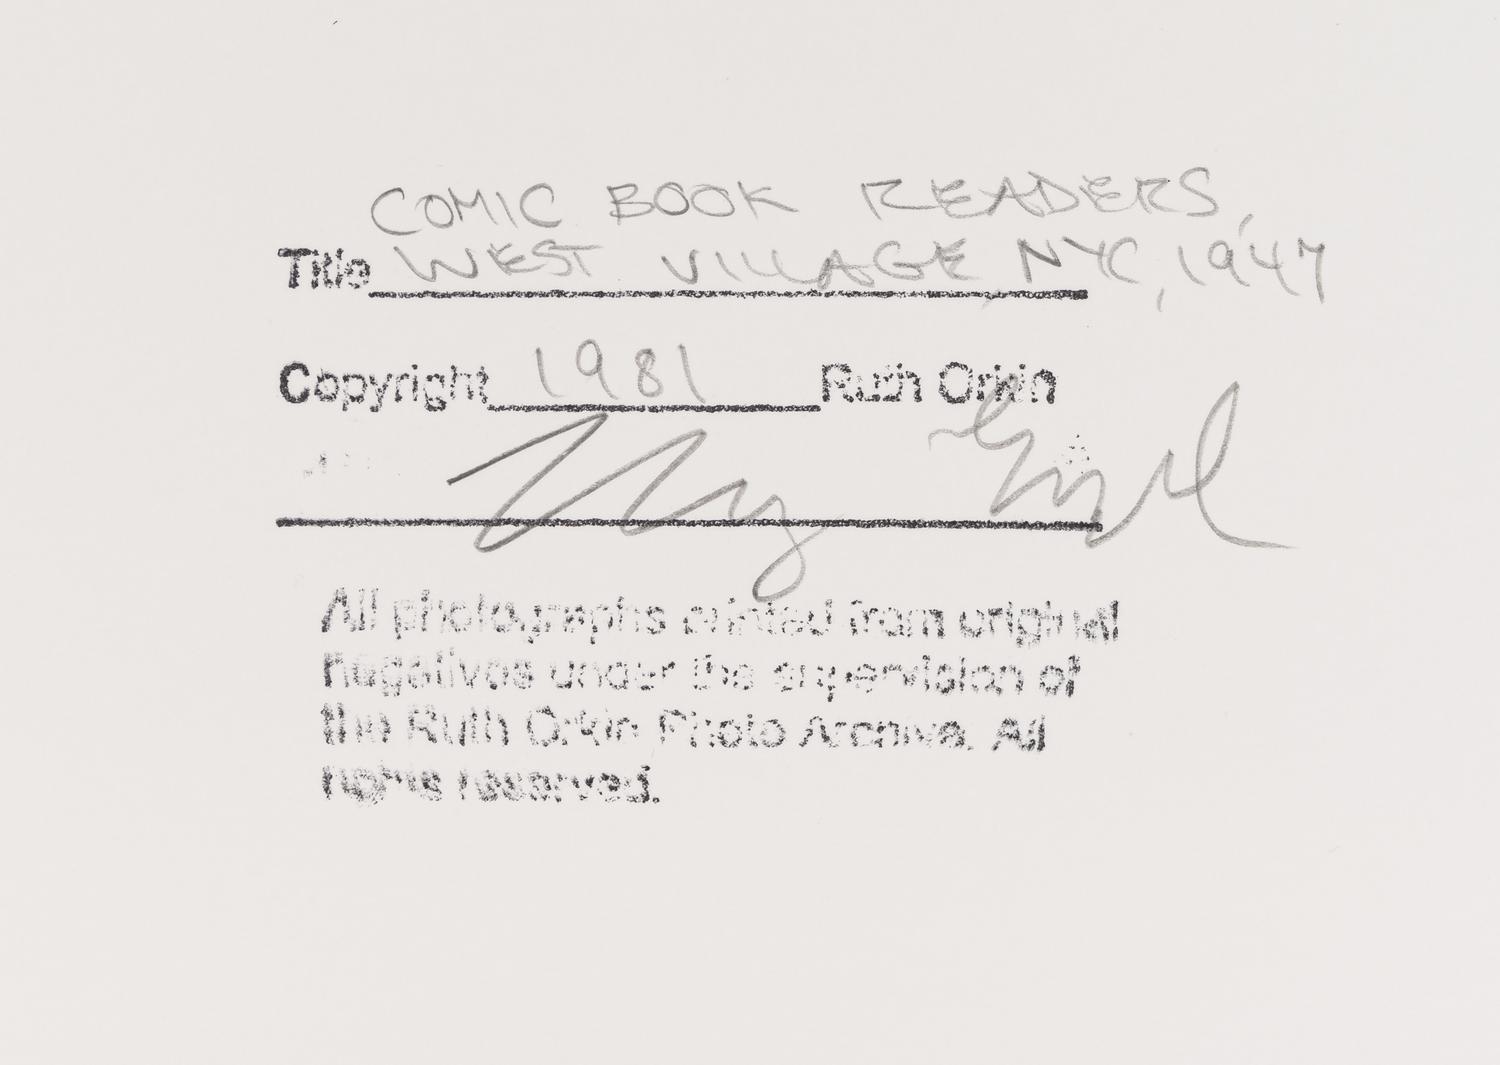 COMIC BOOK READERS,
Title WEST VILLAGE NYC, 1947
Copyright 1981 Ruth Orkin
All photographs printed from original
negatives under the supervision of
the Ruth Orkin Photo Archive. All
rights reserved.